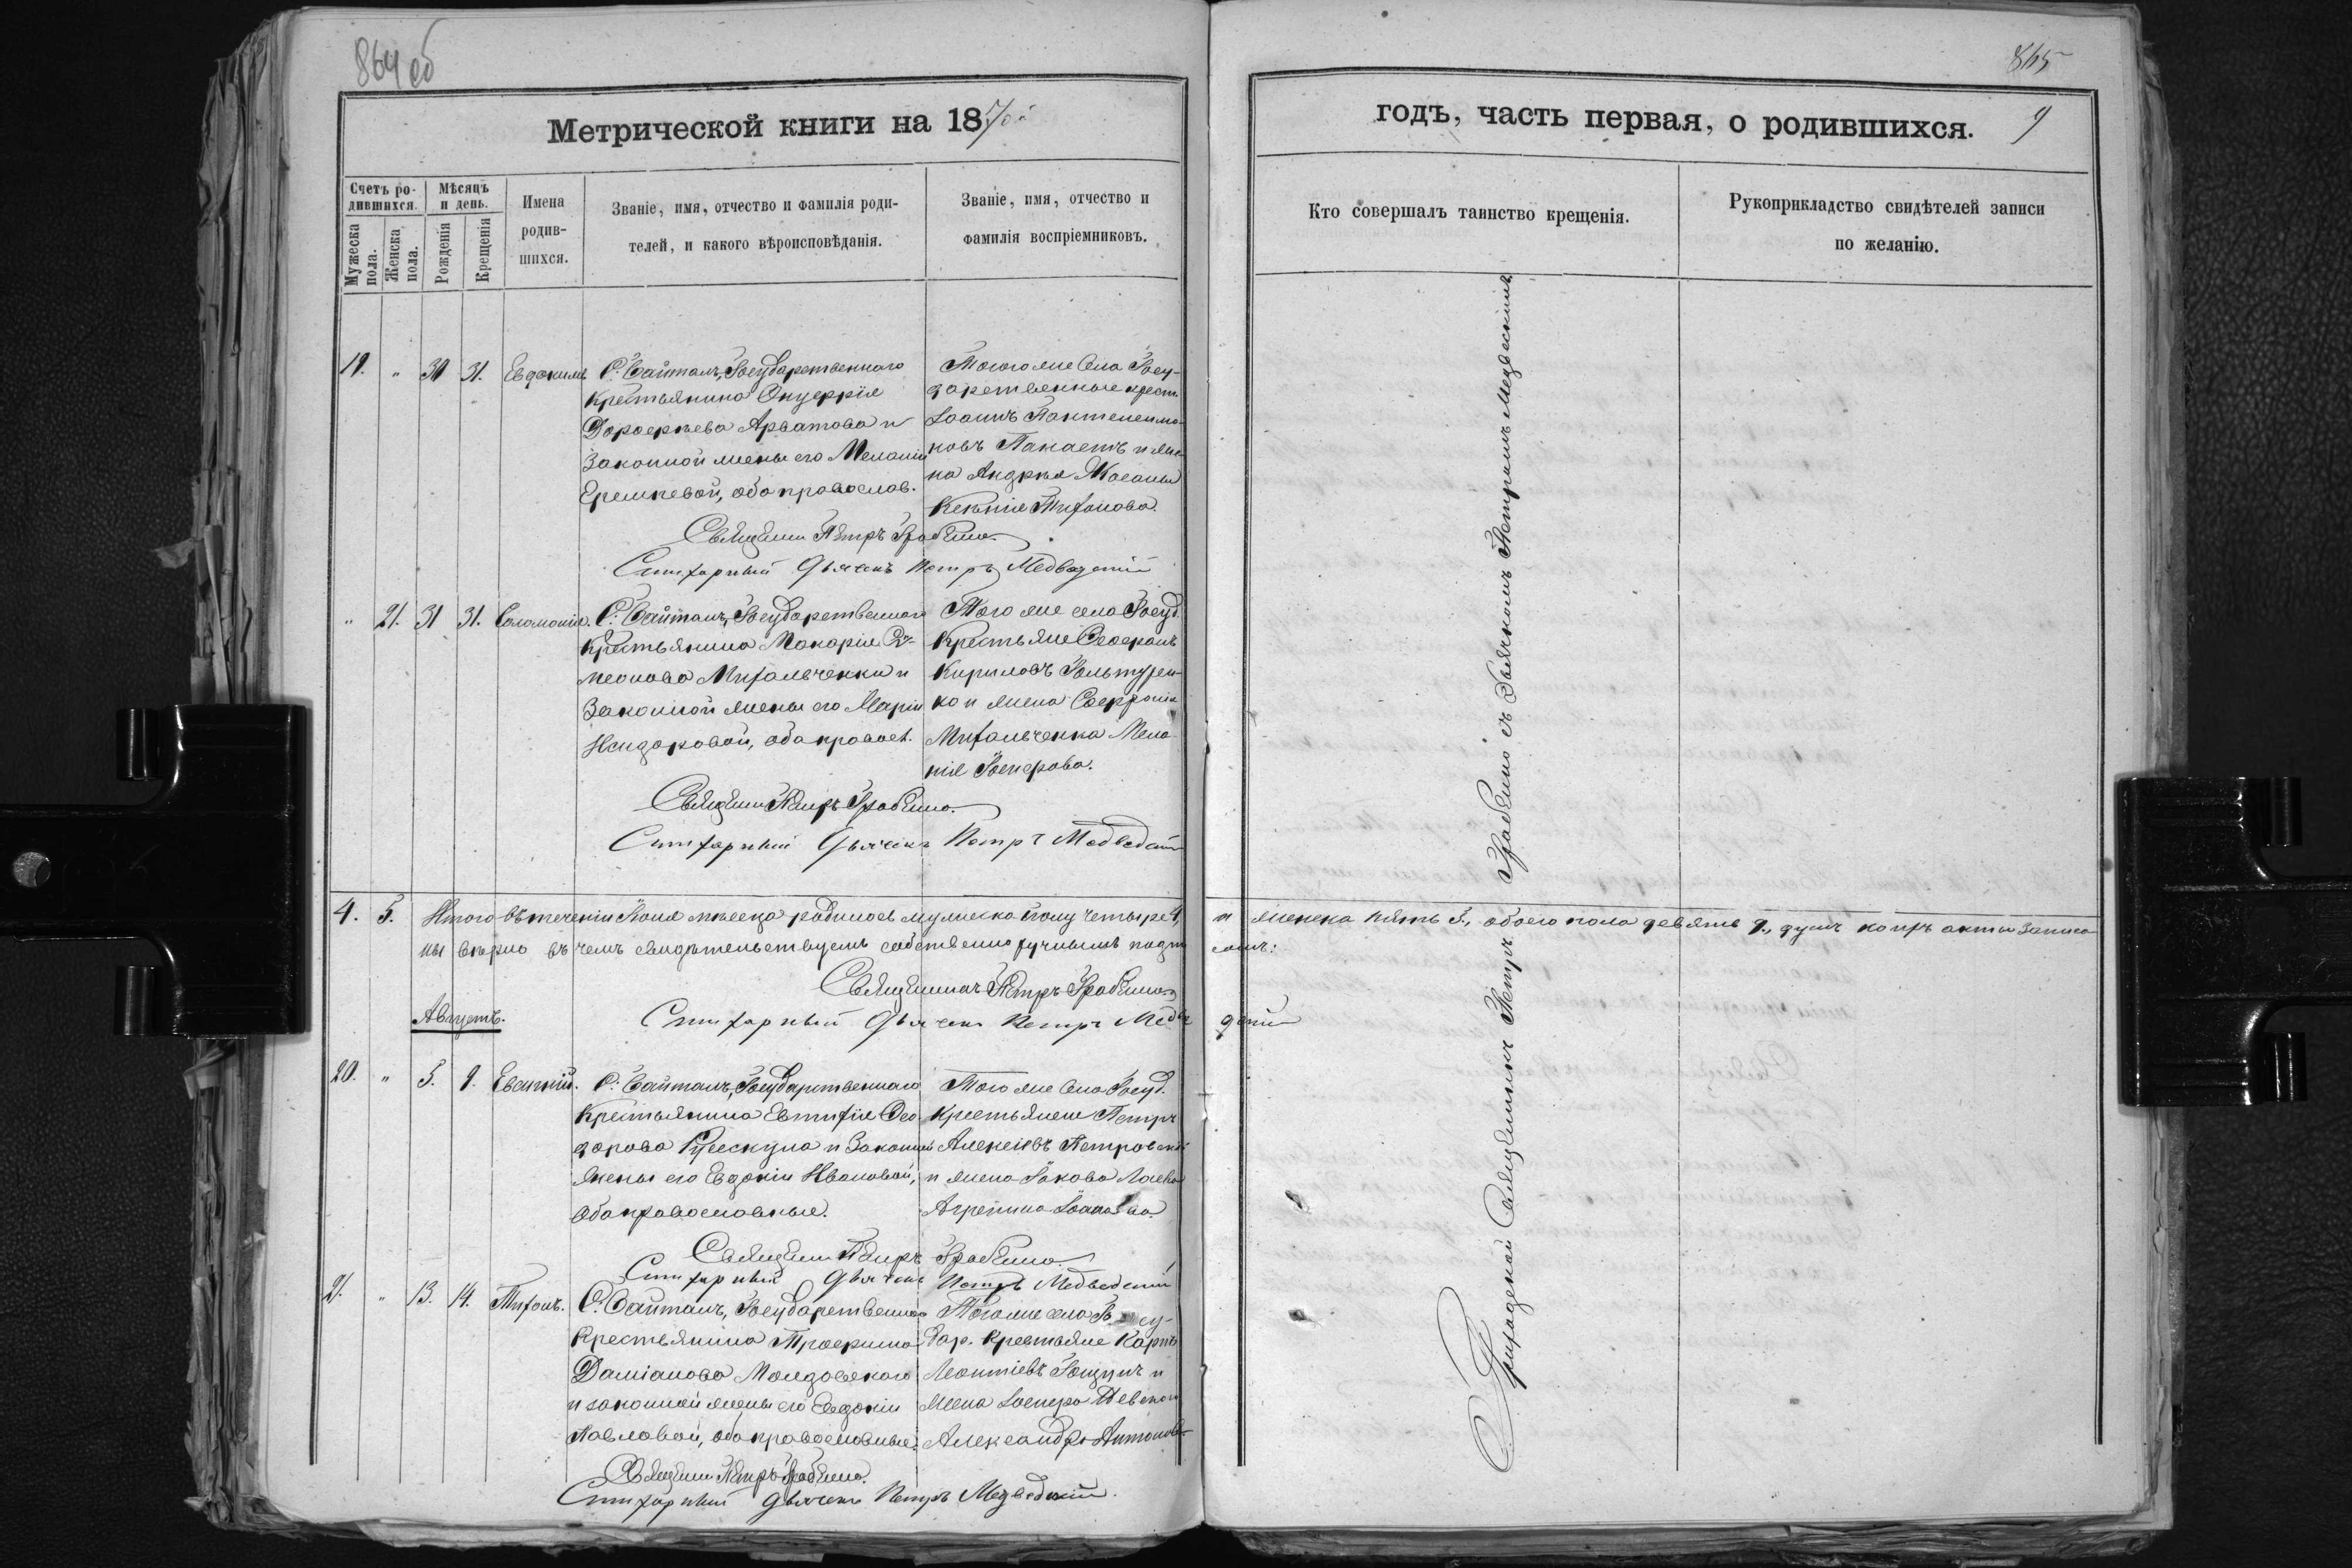 864 об
865
Метрической книги на 1870й
годъ, часть первая, о родившихся. 9
Счетъ ро-
дившихся.
Мужеска
пола.
Женска
пола.
Мѣсяцъ
и день.
Рожденія
Крещенія
Имена
родив-
шихся.
Званіе, имя, отчество и фамилія роди-
телей, и какого вѣроисповѣданія.
Званіе, имя, отчество и
фамилія воспріемниковъ.
Кто совершалъ таинство крещенія.
Рукоприкладство свидѣтелей записи
по желанію.
19. " 30 31. Евдокимъ
С. Байталъ, Государственнаго
крестьянина
Дорофеева Арватова и
Законной жены его Меланіи
Еремиевой, оба православ.
Тогоже Села Госу-
дарственные крест.
Іоаннъ Пантелеимо-
новъ Панаетъ и же-
на Андрея Жосаны
Ксенія Тифонова.
Священни Петръ Грабенко
Стихарный Дьячекъ Петръ Медведскій
" 21. 31 31. Соломонія.
С. Байталъ, Государственнаго
Крестьянина Макарія Си-
меонова Михальченки и
Законной жены его Маріи
Исидоровой, оба правосл.
Того же села Госуд.
Крестьяне Стефанъ
Кириловъ Гольтурен-
ко и жена Софронія
Михальченка Мела-
нія Госифова.
Священни Петръ Грабенко.
Стихарный Дьячекъ Петръ Медведскій
4. 5. Итого въ теченіи Іюля мѣсеца родилось мужеска полу четыре 4,
и женска пять 5., обоего пола девять 9., душъ коихъ акты записа-
ны вѣрно въ чемъ свидѣтельствуемъ собственно ручнымъ подпи
сомъ:
Священникъ Петръ Грабенко
Стихарный Дьячекъ Петръ Медве
дскій
Августъ.
20. " 5. 9. Евсигній.
С. Байталъ, Государственнаго
Крестьянина Евтифія Фео-
дорова Русскула и Законной
жены его Евдокіи Ивановой,
оба православные.
Того же Села Госуд.
крестьяне Петръ
Алексіевъ Петровскій
и жена Іакова Лаева
Агрепина Іоанова.
Священни Петръ Грабенко.
Стихарный Дьячекъ Петръ Медведскій
21. " 13. 14. Тихонъ.
С. Байталъ, Государственнаго
Крестьянина Трофима
Даміанова Молдовскаго
и законной жены его Евдокіи
Павловой, оба православные.
Тогоже села Госу-
дар. Крестьяне Карпъ
Леонтіевъ Гонцулъ и
жена Іосифа
Александра Антонова
Священни Петръ Грабенко.
Стихарный Дьячекъ Петръ Медведскій.
Приходской Священникъ Петръ Грабенко съ Дьячкомъ Петромъ Медведскимъ